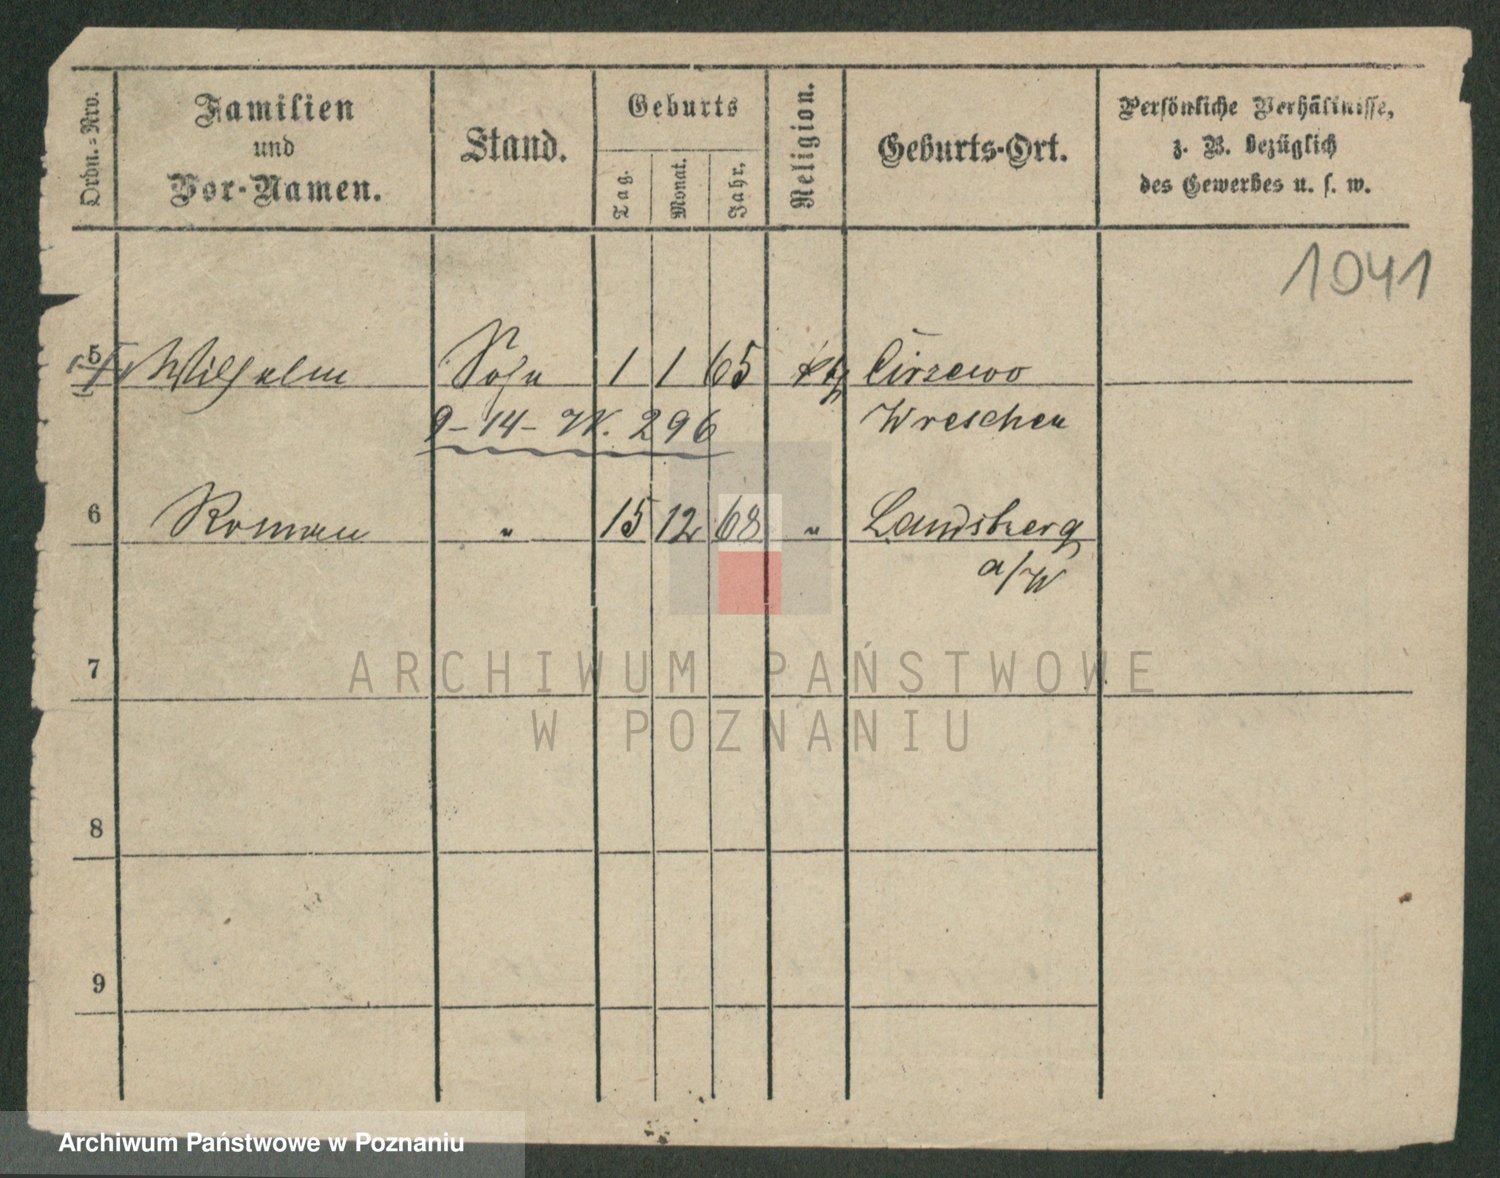 Ordn.-Nro.
Familien
und
Vor-Namen.
Stand.
Geburts
Tag.
Monat.
Jahr.
Religion.
Geburts-Ort.
Persönliche Verhältnisse,
z. B. bezüglich
des Gewerbes u. s. w.
1041
5 Wilhelm Sohn 1 1 65 ktg
Wreschen
9-14- W. 296
6 Roman " 15 12 68 " Landsberg
a/W
7
8
9
ARCHIWUM PAŃSTWOWE
W POZNANIU
Archiwum Państwowe w Poznaniu